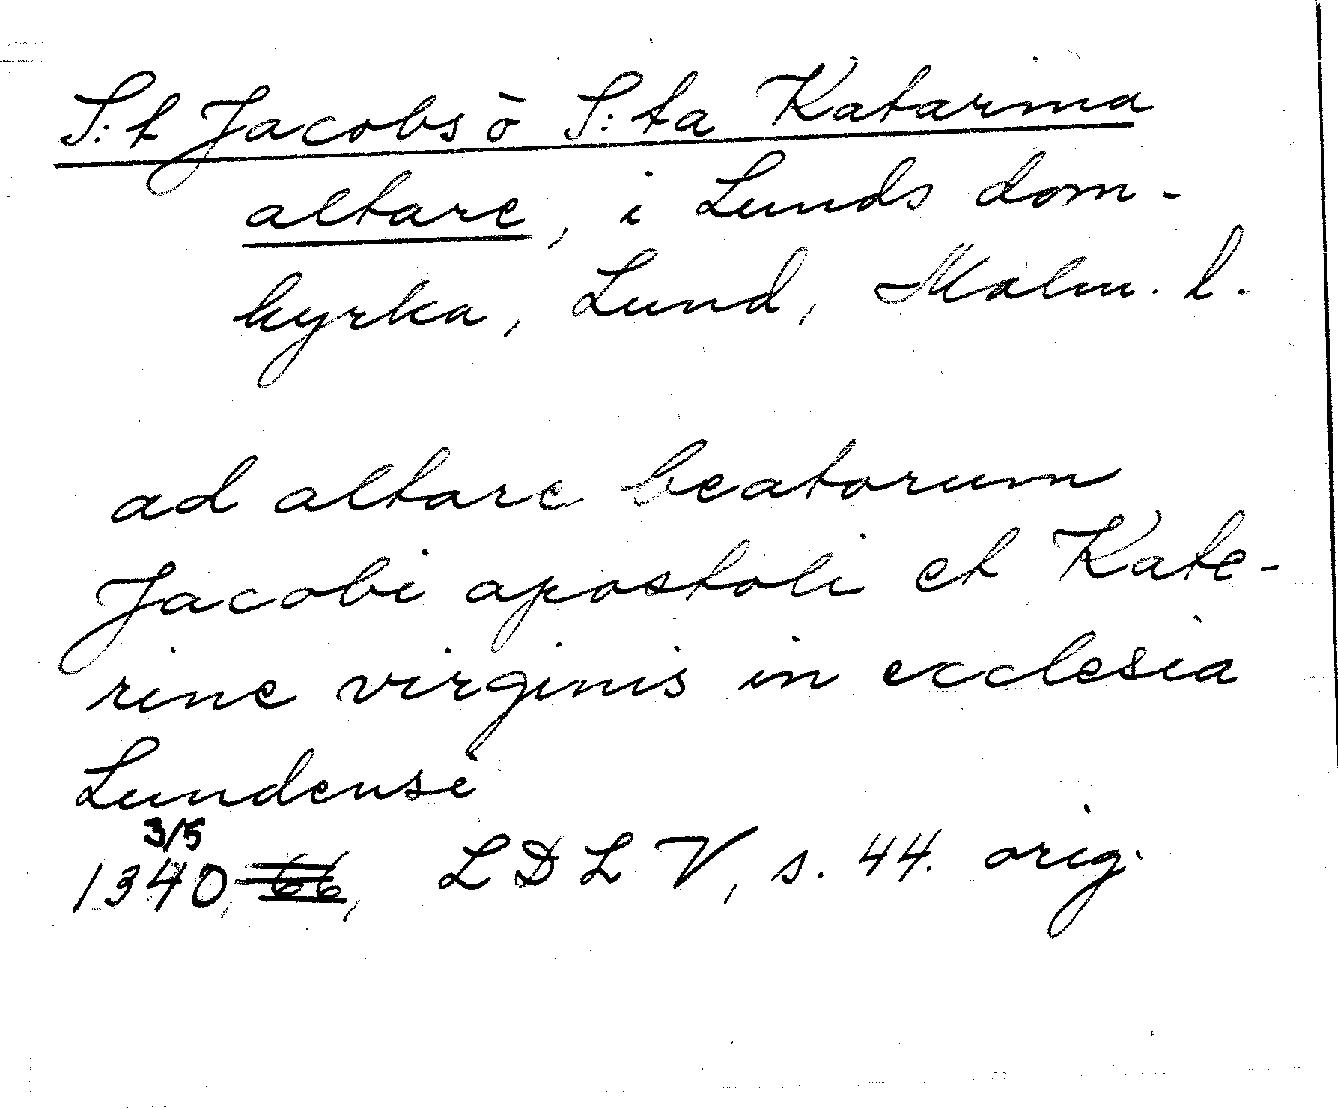 S:t Jacobs o S:ta Katarina
altare, i Lunds dom-
kyrka, Lund, Malm. l.
ad altare beatorum
Jacobi apostoli et Kate-
rine virginis in ecclesia
Lundensi
3/5
1340, LDL V, s. 44. orig.